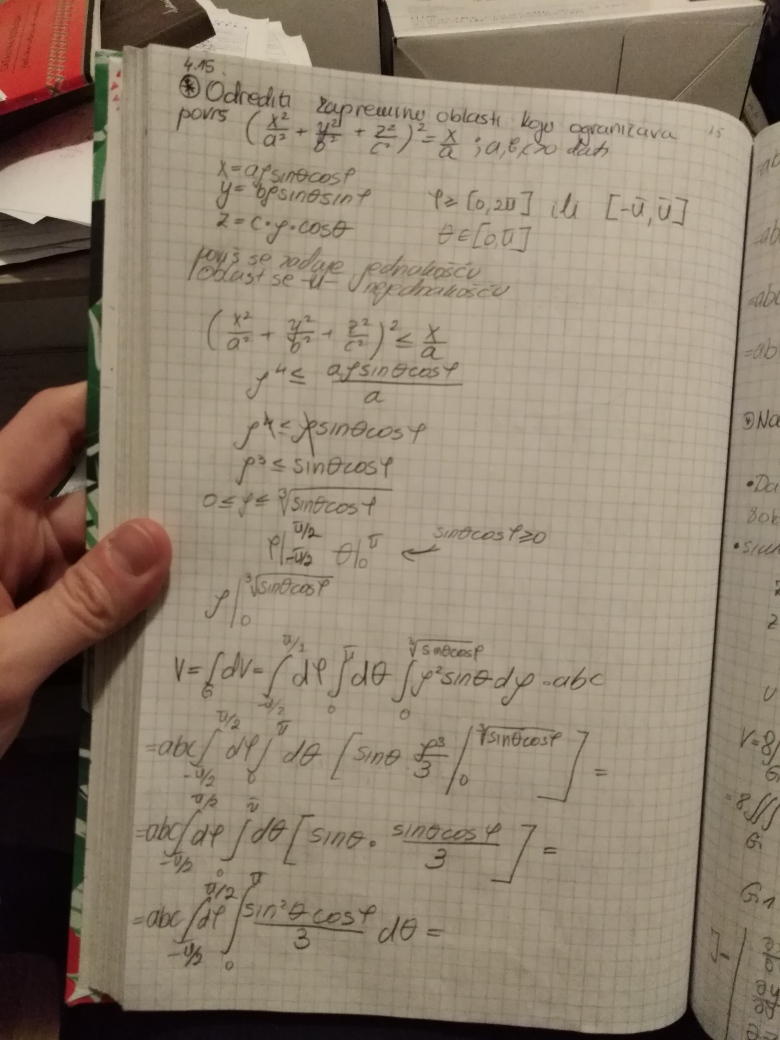 4.15.
⊛ Odrediti zapreminu oblasti koju ograničava
površ (x²/a² + y²/b² + z²/c²)² = x/a ; a,b,c>0 dati
x = aρsinθcosφ
y = bρsinθsinφ φ ∈ [0,2π] ili [-π,π]
z = c·ρ·cosθ θ ∈ [0,π]
površ se zadaje jednakošću
oblast se -||- nejednakošću
(x²/a² + y²/b² + z²/c²)² ≤ x/a
ρ⁴ ≤ aρsinθcosφ/a
ρ⁴ ≤ ρsinθcosφ
ρ³ ≤ sinθcosφ
0 ≤ ρ ≤ ∛(sinθcosφ)
φ|_{-π/2}^{π/2} θ|_0^π ← sinθcosφ≥0
ρ|_0^{∛(sinθcosφ)}
V = ∫_G dV = ∫_{-π/2}^{π/2} dφ ∫_0^π dθ ∫_0^{∛(sinθcosφ)} ρ² sinθ dρ · abc
= abc ∫_{-π/2}^{π/2} dφ ∫_0^π dθ [sinθ ρ³/3 |_0^{∛(sinθcosφ)}] =
= abc ∫_{-π/2}^{π/2} dφ ∫_0^π dθ [sinθ · sinθcosφ/3] =
= abc ∫_{-π/2}^{π/2} dφ ∫_0^π sin²θ cosφ/3 dθ =
15
=ab
=ab
=abc
=ab
⊛ Na
• Da
• siu
z
z
V=8∫
G
=8∬
G
G₁
J=